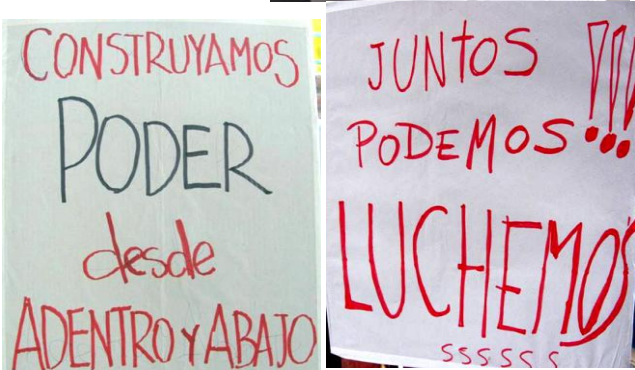 CONSTRUYAMOS
PODER
desde
ADENTRO Y ABAJO
JUNTOS
PODEMOS!!!
LUCHEMOS
SSSSSS